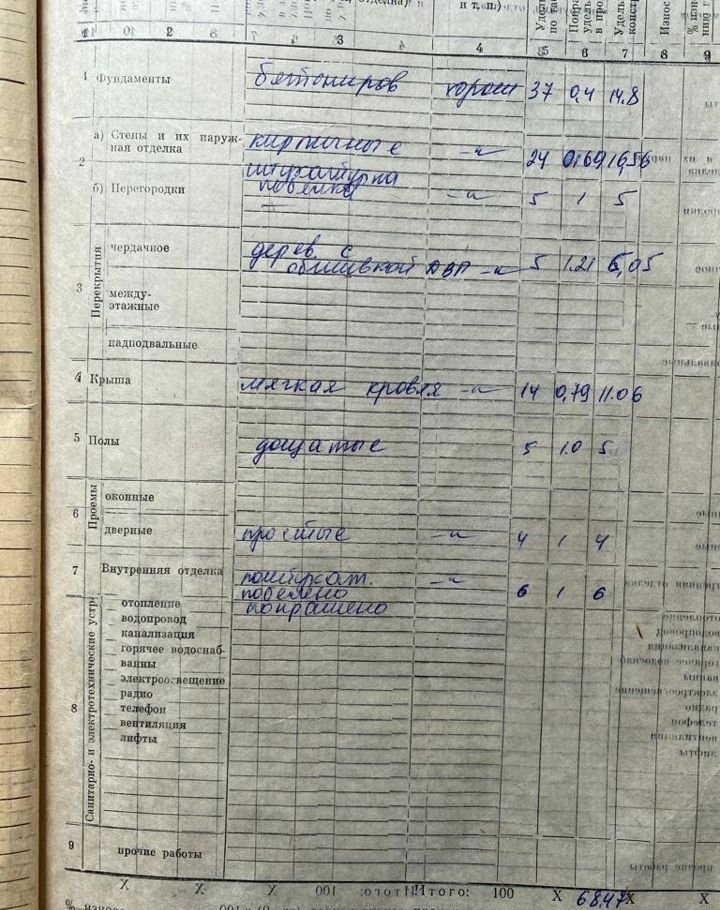 и т. п.)
1 2 3 4 5 6 7 8 9
1 Фундаменты бетониров хорош 37 0,4 14.8
а) Стены и их наруж- кирпичные —„— 24 0,69 16,56
2 ная отделка
штукатурка
б) Перегородки побелка —„— 5 1 5
чердачное дерев. с
обшивкой ДВП —„— 5 1.21 6,05
3 Перекрытия между-
этажные
надподвальные
4 Крыша мягкая кровля —„— 14 0,79 11.06
5 Полы дощатые 5 1.0 5
6 Проемы оконные
дверные простые —„— 4 1 4
7 Внутренняя отделка поштукат. —„—
побелено 6 1 6
отопление покрашено
водопровод
канализация
горячее водоснаб-
ванны
электроосвещение
радио
8 Санитарно- и электротехнические устр- телефон
вентиляция
лифты
9 прочие работы
Итого: 100 X 68,47 X X